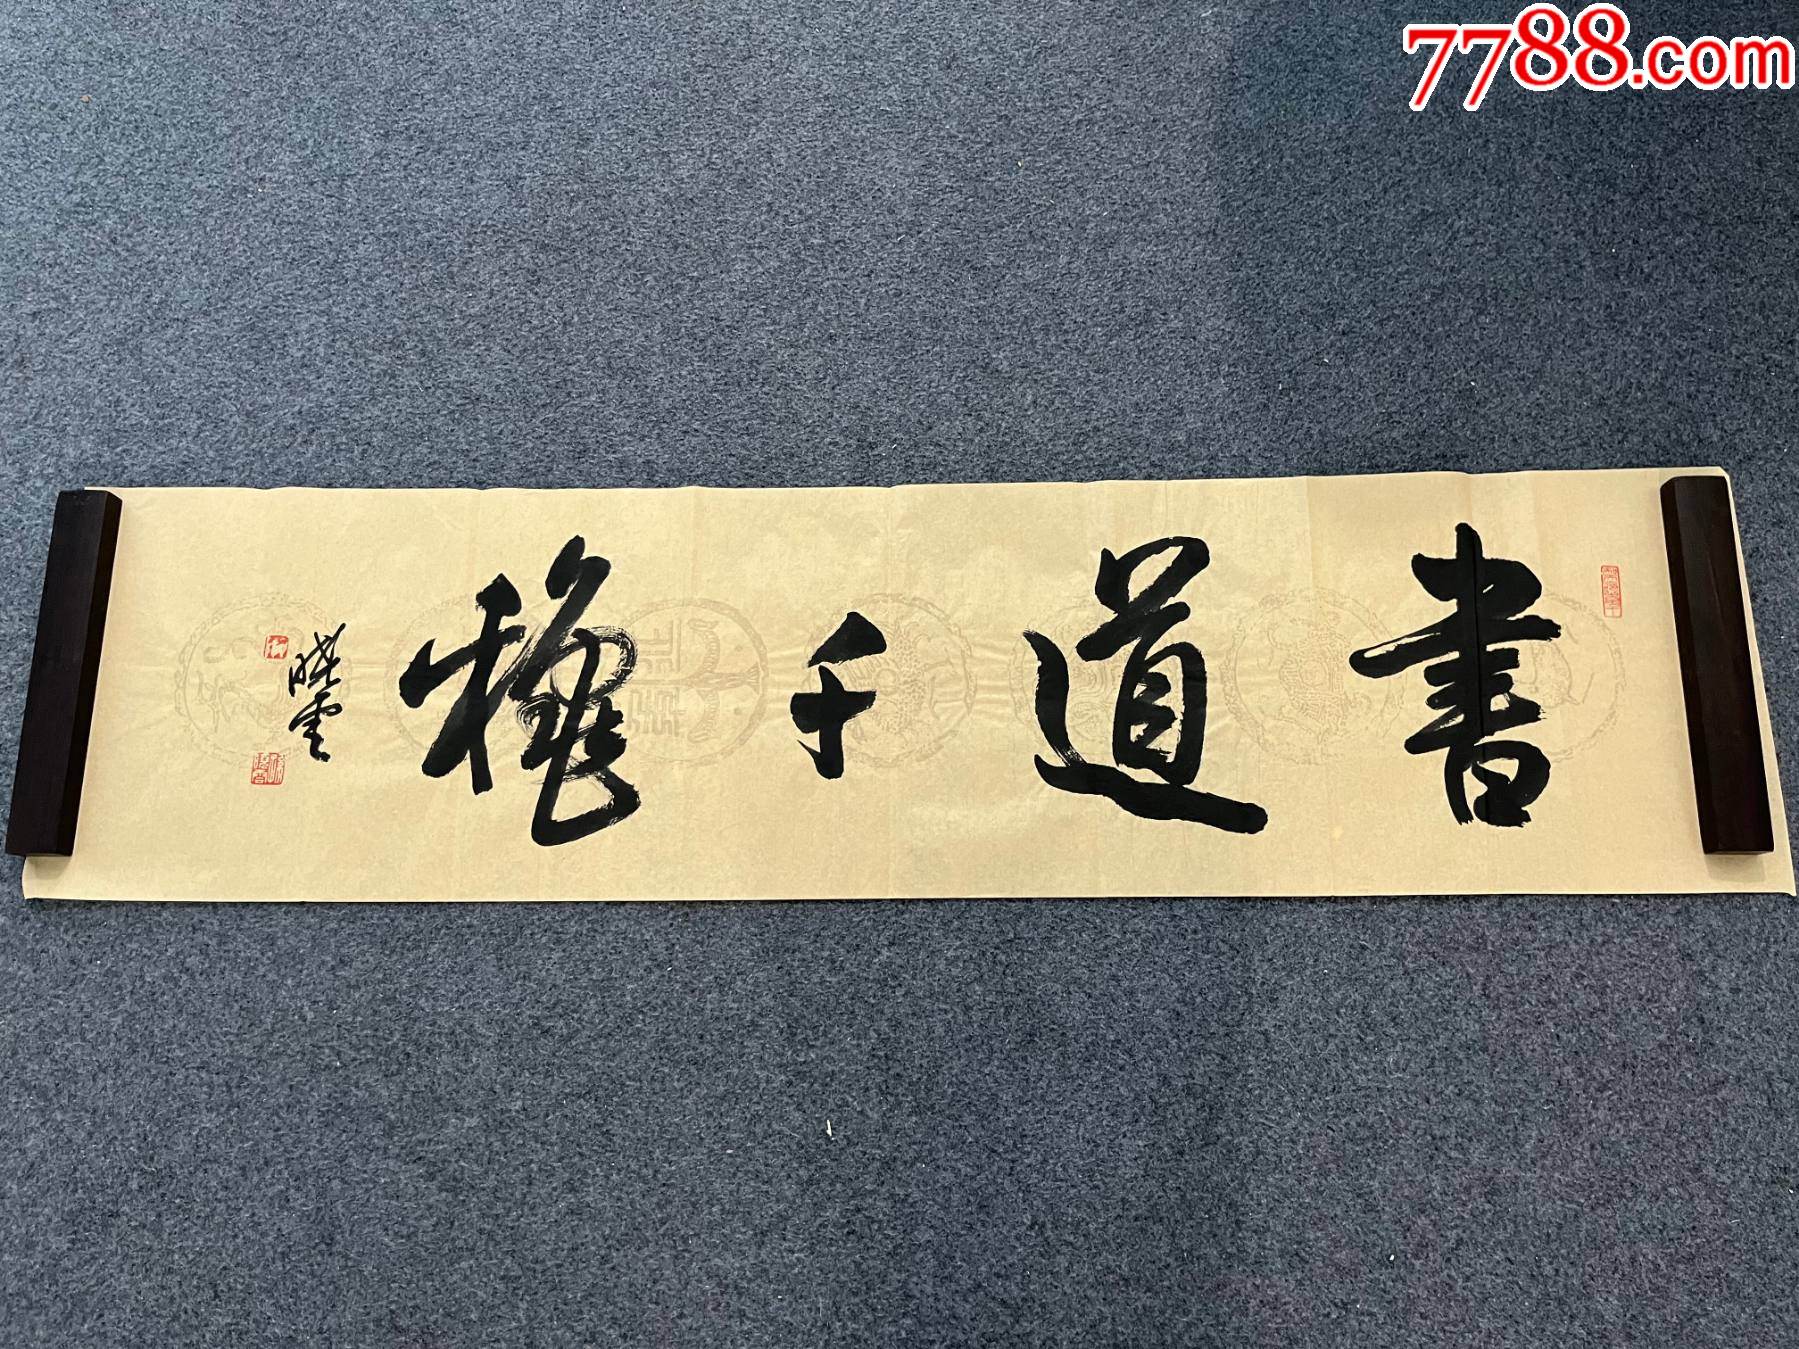 7788.com
書道千龝
曉雲